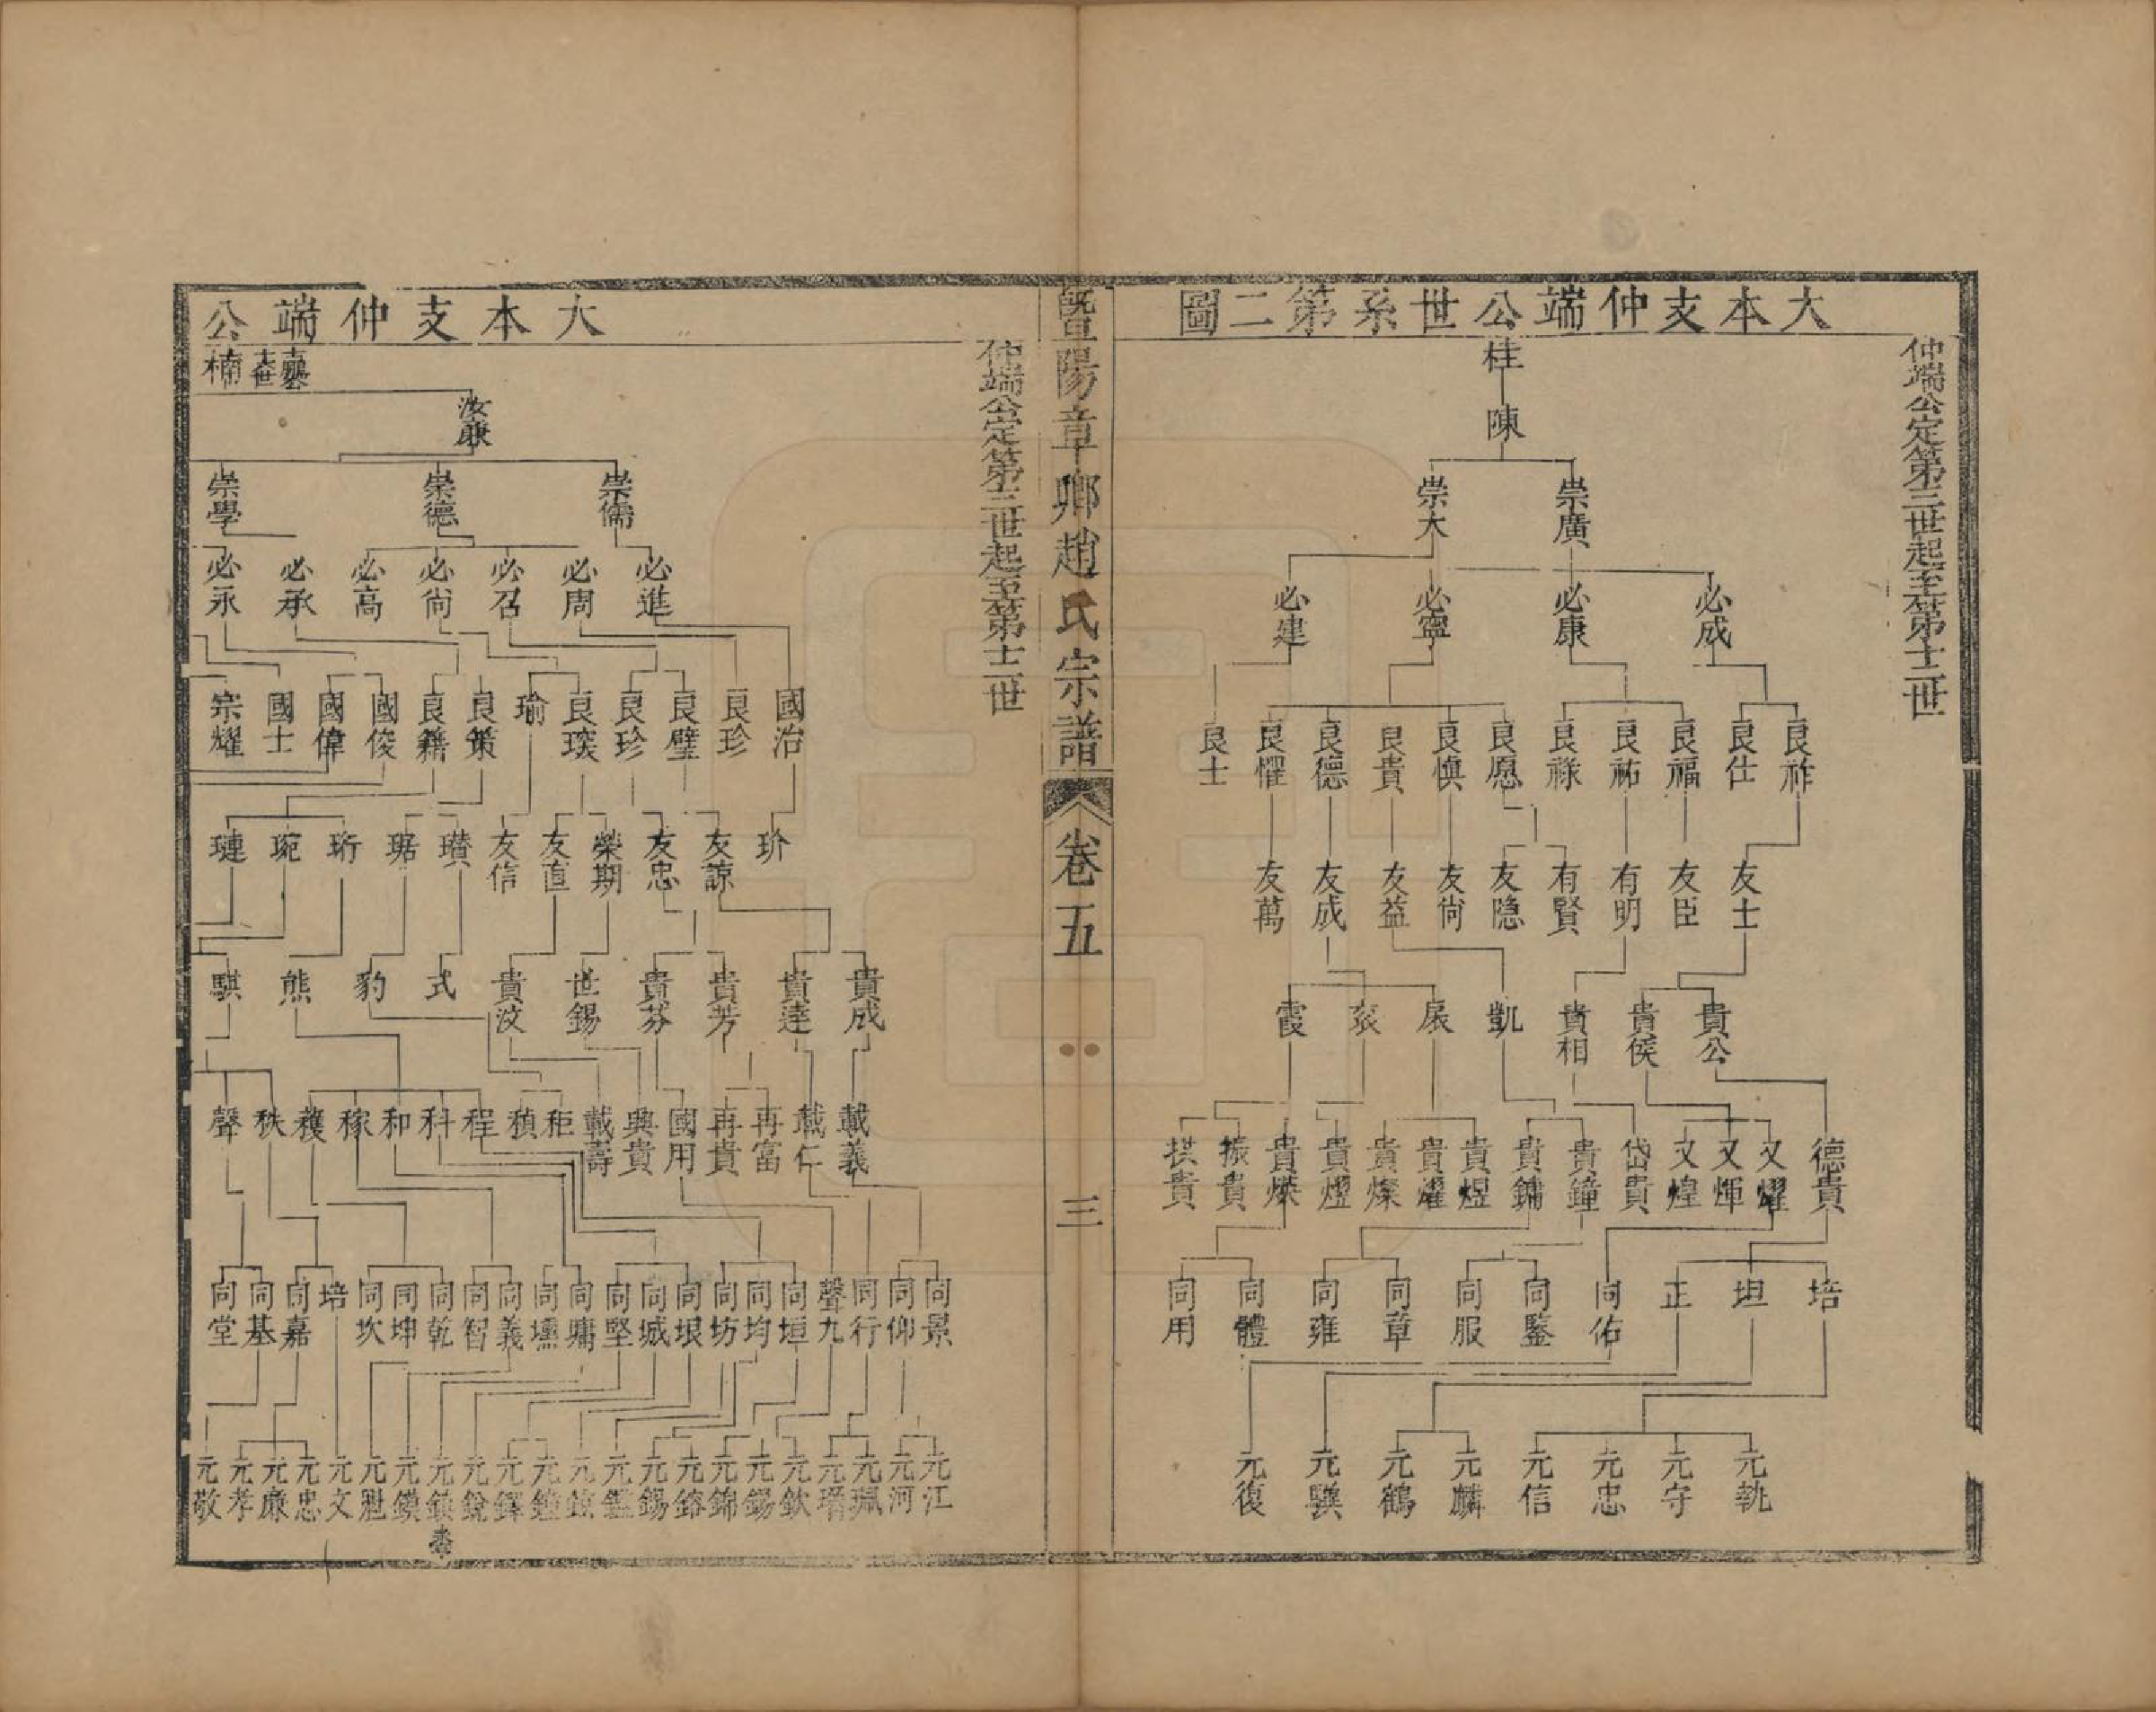 大本支仲端公世系第二圖
仲端公定第三世起至第十二世
桂
陳
崇廣 崇大
必成 必康 必寧 必建
良祚 良仕 良福 良祐 良祿 良愿 良慎 良貴 良德 良懼 良士
友士 友臣 有明 有賢 友隐 友尙 友益 友成 友萬
貴公 貴侯 貴相 凱 扆 衮 霞
德貴 又燿 又煇 又煌 岱貴 貴鐘 貴鏞 貴煜 貴燿 貴燦 貴熤 貴燦 振貴 拱貴
培 坦 正 同佑 同鑒 同服 同章 同雍 同體 同用
元執 元守 元忠 元信 元麟 元鶴 元驥 元復
暨陽章卿趙氏宗譜
卷五
三
大本支仲端公
仲端公定第三世起至第十二世
楠
汝康
崇儒 崇德 崇學
必進 必周 必召 必尙 必高 必承 必永
國治 良珍 良璧 良珍 良琰 瑜 良策 良籍 國俊 國偉 國士 宗耀
玠 友諒 友忠 榮期 友直 友信 瓚 琚 珩 琬 璉
貴成 貴達 貴芳 貴芬 世錫 貴汶 式 豹 熊 騏
載義 載仁 再富 再貴 國用 興貴 載壽 秬 稹 程 科 和 稼 穫 秩 聲
同景 同仰 同行 聲九 同垣 同均 同坊 同垠 同城 同堅 同墉 同壎 同義 同智 同乾 同坤 同坎 培 同嘉 同基 同堂
元江 元河 元珮 元瑨 元欽 元錫 元錦 元鎔 元錫 元鐘 元鐸 元銳 元鎮 元鏌 元文 元忠 元廉 元孝 元敬